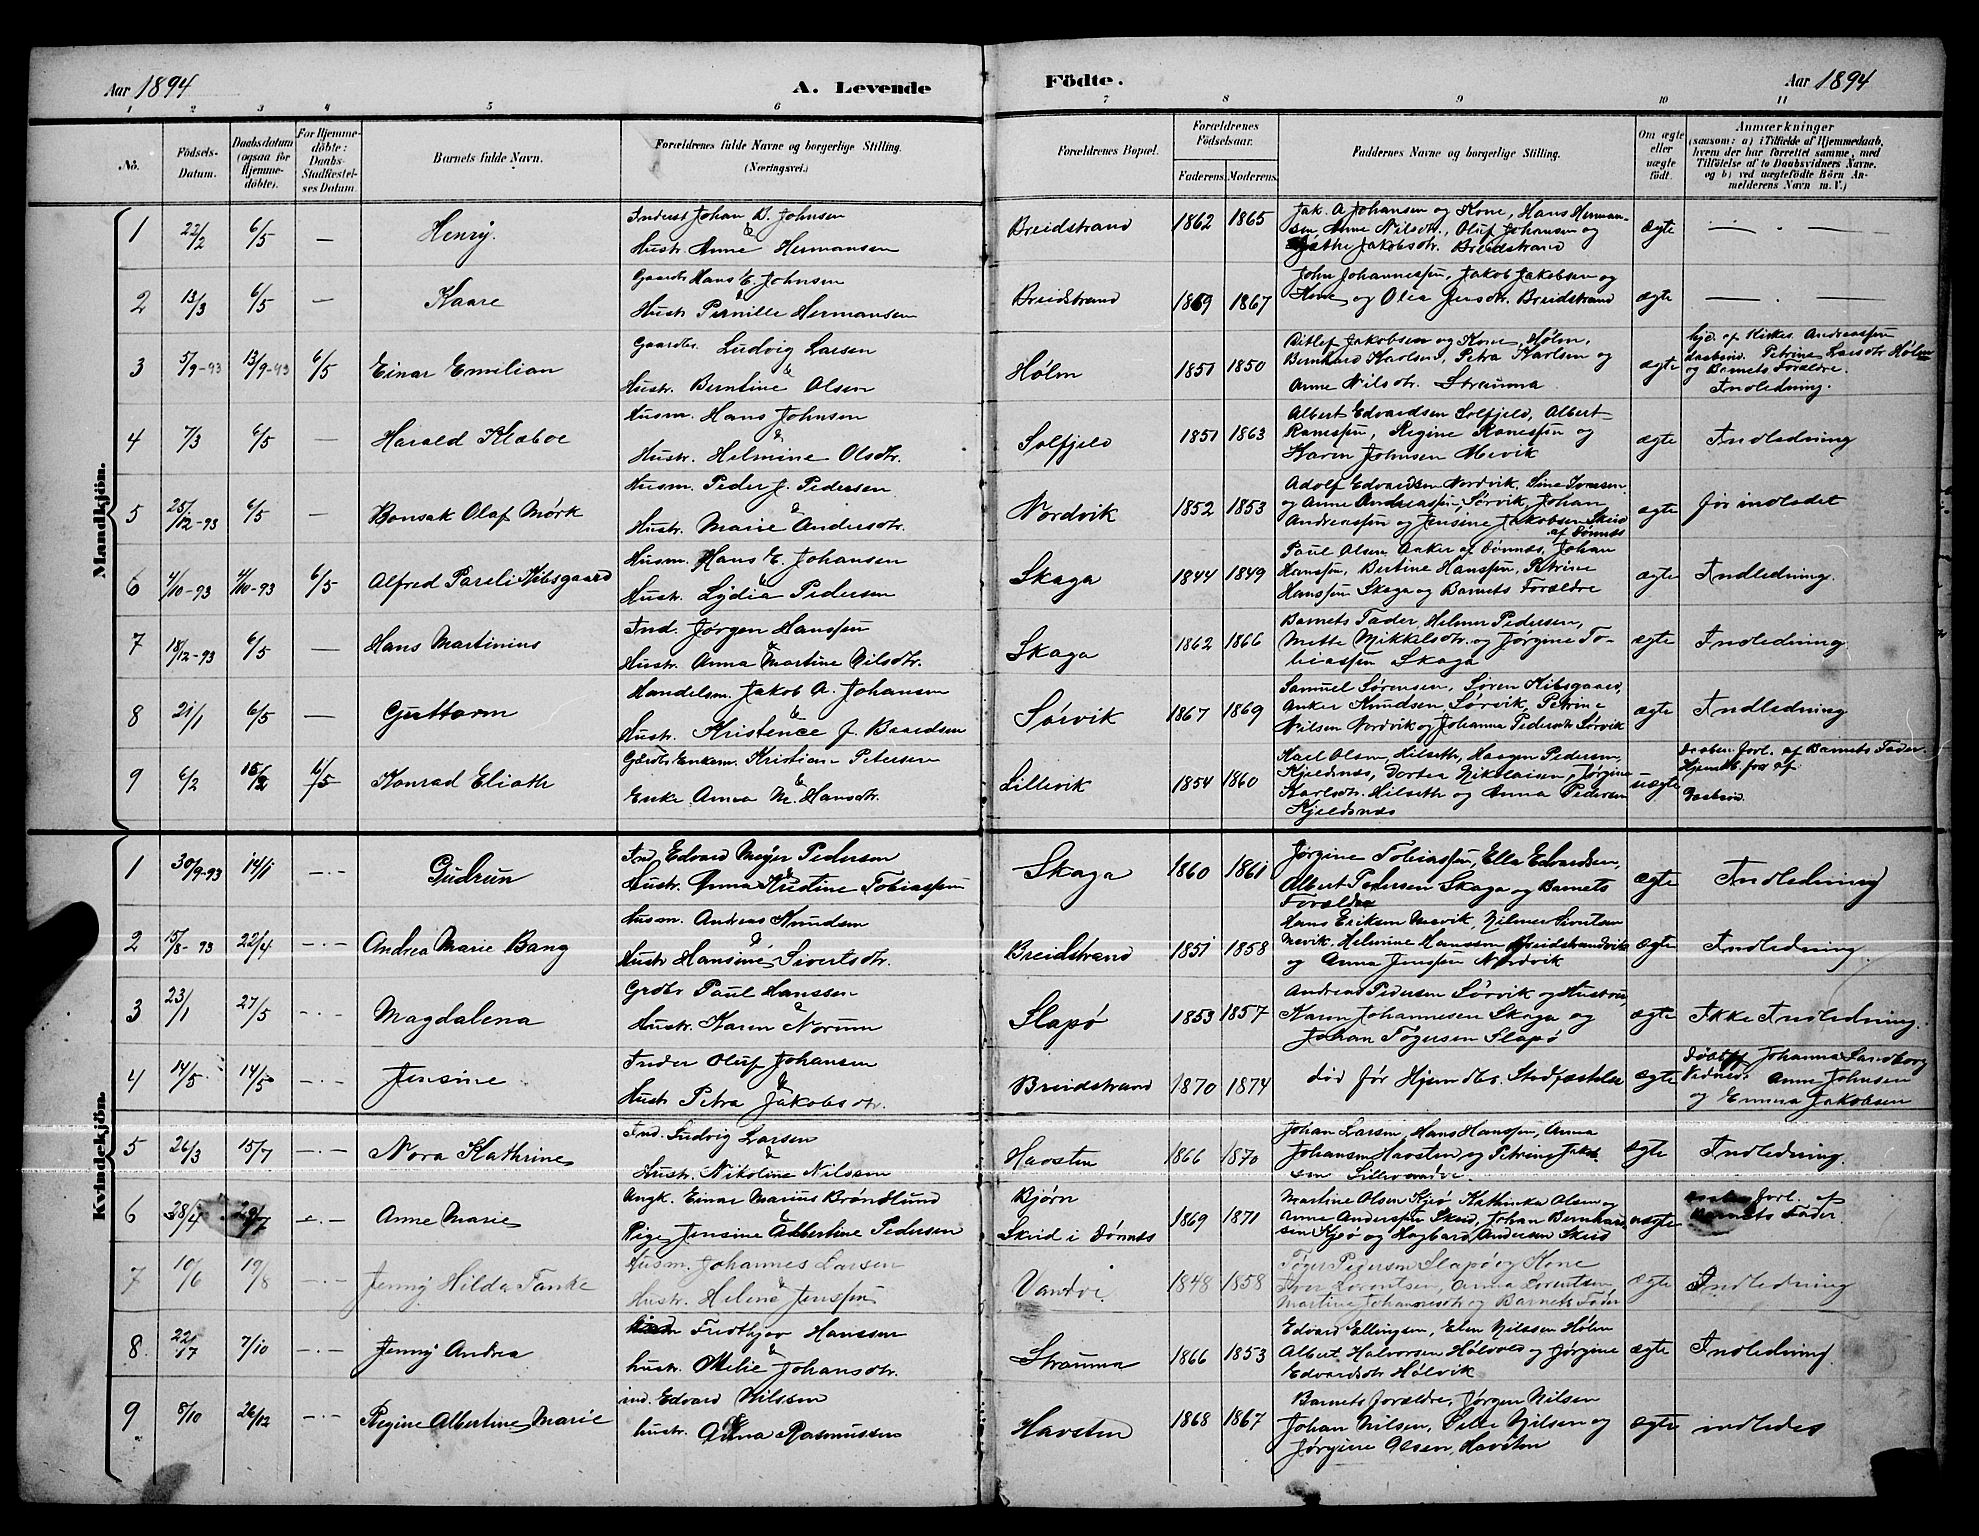 Aar 1894
A. Levende
Födte.
Aar 1894
1 2 3 4 5 6 7 8 9 10 11
No.
Födsels-
Datum.
Daabsdatum
(ogsaa for
Hjemme-
döbte).
For Hjemme-
döbte:
Daabs-
Stadfæstel-
ses Datum.
Barnets fulde Navn.
Forældrenes fulde Navne og borgerlige Stilling.
(Næringsvei.)
Forældrenes Bopæl.
Forældrenes
Födselsaar.
Faderens. Moderens.
Faddernes Navne og borgerlige Stilling.
Om ægte
eller
uægte
født.
Anmærkninger
(saasom: a) i Tilfælde af Hjemmedaab,
hvem der har forrettet samme, med
Tilföielse af to Daabsvidners Navne,
og b) ved uægtefödte Börn An-
melderens Navn m. V.)
Mandkjön.
1 22/2 6/5 — Henry.
Inderst Johan B. Johnsen
&
Hustr. Anne Hermansen
Breidstrand 1862 1865
Jak. A Johansen og Kone, Hans Herman-
sen Anne Nilsdtr., Oluf Johansen og
Jakobsdtr. Breidstrand
ægte — . —
2 13/3 6/5 — Kaare
Gaardbr Hans E. Johnsen
&
Hustr Pernille Hermansen
Breidstrand 1869 1867
John Johannessen, Jakob Jakobsen og
Kone og Olea Jensdtr. Breidstrand
ægte — . —
3 5/9-93 13/9-93 6/5 Einar Emilian
Gaardbr. Ludvig Larsen
&
Hustr. Berntine Olsen
Hølm 1851 1850
Ditlef Jakobsen og Kone, Hølm,
Bernhard Karlsen, Petra Karlsen og
Anne Nilsdtr. Strauma
ægte
hjd. af Kirkes. Andreassen
daabsvid. Petrine Larsdtr Hølm
og Barnets Forældre.
Indledning.
4 7/3 6/5 — Harald Klæboe
Husm. Hans Johnsen
&
Hustr. Helmine Olsdtr.
Solfjeld 1851 1863
Albert Edvardsen Solfjeld, Albert
Ranessen, Regine Ranessen og
Karen Johnsen Mevik
ægte Indledning
5 25/12-93 6/5 — Bonsak Olaf Mørk
Husm. Peder J. Pedersen
&
Hustr. Marie Andersdtr.
Nordvik 1852 1853
Adolf Edvardsen Nordvik, Sine Ivarsen
og Anne Andreassen, Sørvik, Johan
Andreassen og Jensine Jakobsen Skeid
af Dønnes
ægte før indledet
6 4/10-93 4/10-93 6/5 Alfred Pareli Kibsgaard
Husm. Hans E. Johansen
&
Hustr. Lydia Pedersen
Skaga 1844 1849
Paul Olsen Anker af Dønnes, Johan
Hansen, Bertine Hanssen, Petrine
Hanssen Skaga og Barnets Forældre
ægte Indledning.
7 18/12-93 6/5 — Hans Martinius
Ind. Jørgen Hanssen
&
Hustr. Anna Martine Nilsdtr.
Skaga 1862 1866
Barnets Fader, Helmer Pedersen,
Mette Mikkelsdtr. og Jørgine To-
biassen Skaga
ægte Indledning
8 21/1 6/5 — Guttorm
Handelsm. Jakob A. Johansen
&
Hustr. Kristence J. Baardsen
Sørvik 1867 1869
Samuel Sørensen, Søren Kibsgaard,
Anker Knudsen Sørvik, Petrine
Nilsen Nordvik og Johanna Pedersdtr Sørvik
ægte Indledning
9 6/2 6/5 Konrad Eliath
Gdbr Enkem. Kristian Petersen
&
Enke Anna M. Hansdtr.
Lillevik 1854 1860
Karl Olsen, Hilseth, Haagen Pedersen,
Kjeldnæs, Dortea Nikolaisen, Jørgine
Karlsdtr. Hilseth og Anna Pedersen
Kjeldsnæs
uægte
Daaben forl. af Barnets Fader.
Hjemdb. for af
Daabsvid.
Kvindekjön.
1 30/9-93 14/1 —·— Gudrun
Ind Edvard Meyer Pedersen
&
Hustr. Anna Kristine Tobiassen
Skaga 1860 1861
Jørgine Tobiassen, Ella Edvardsen,
Albert Pedersen Skaga og Barnets
Forældre
ægte Indledning
2 15/8-93 22/4 —·— Andrea Marie Bang
Husm. Andreas Knudsen
&
Hustr Hansine Sivertsdtr.
Breidstrand 1851 1858
Hans Eriksen Mevik, Hilmer Sivertsen
Mevik, Helmine Hanssen Breidstrandvik
og Anna Jenssen Nordvik
ægte Indledning.
3 23/1 27/5 —·— Magdalena
Grdbr Paul Hanssen
&
Hustr. Karen Norum
Slapø 1853 1857
Andreas Pedersen Sørvik og Hustru,
Karen Johannesen Skaga og
Johan Tøgersen Slapø
ægte Ikke Indledning.
4 14/5 14/5 —·— Jensine
Inder Oluf Johansen
&
Hustr Petra Jakobsdtr.
Breidstrand 1870 1874
død før Hjemdbs. Stadfæstelse
ægte
Johanna Sandborg
Vidner: Anne Johnsen
og Emma Jakobsen
5 26/3 15/7 —·— Nora Kathrine
Ind. Ludvig Larsen
&
Hustr. Nikoline Nilssen
Havsten 1866 1870
Johan Larsen, Hans Hanssen, Anna
Johansen Havsten og Petrine Jakob-
sen
ægte Indledning.
6 28/4 —·— Anne Marie
Ungk. Einar Marius Brøndlund
&
Pige Jensine Albertine Pedersen
Bjørn
Skeid i Dønnes 1869 1871
Martine Olsen Kjeø Kathinka Olsen og
Anne Anderssen Skeid, Johan Bernhard-
sen Kjeø og Hagbard Andersen Skeid
uægte
forl. af
Barnets Fader.
7 10/6 19/8 —·— Jenny Hilda Tanke
Husm. Johannes Larsen
&
Hustr. Helene Jenssen
Vandvé 1848 1858
Tøger Pedersen Slapø og Kone
Iver Lorentsen, Anna Lorentsen
Martine Johannesdtr og Barnets Fader
ægte Indledning
8 22/7 7/10 —·— Jenny Andrea
Fredthjov Hanssen
&
hustr. Melie Johansdtr.
Strauma 1866 1853
Edvard Ellingsen, Elen Nilssen Hølm
Albert Halvorsen og Jørgine
Edvardsdtr Hølvik
ægte Indledning.
9 8/10 26/12 —·— Regine Albertine Marie
ind. Edvard Nilssen
&
hustr. Anna Rasmussen
Havsten 1868 1867
Barnets forældre, Jørgen Nilsen
Johan Nilsen, Nilsen og
Jørgine Olsen, Havsten
ægte indledes